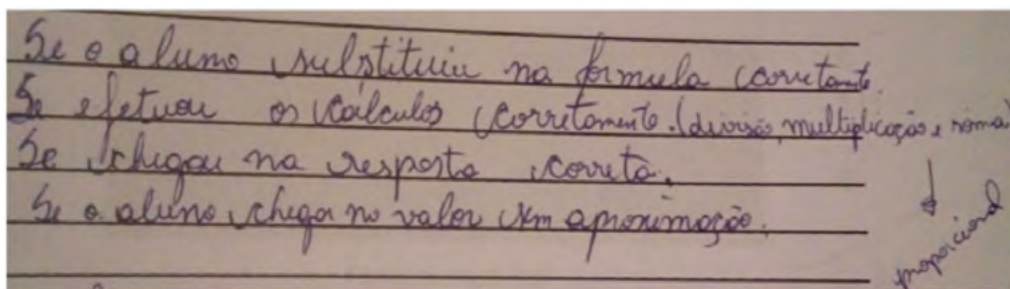 Se o aluno substituiu na formula corretamente.
Se efetuou os cálculos corretamente. (divisão, multiplicação e soma)
Se chegou na resposta correta.
Se o aluno chega no valor sem aproximação.
proporcional